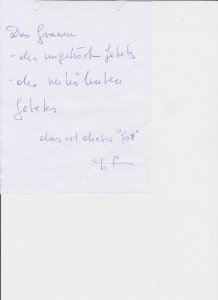 Das Grauen
- des ungehörten Gebets
- des verhöhnten
Gebetes
das ist dieser "Gott"